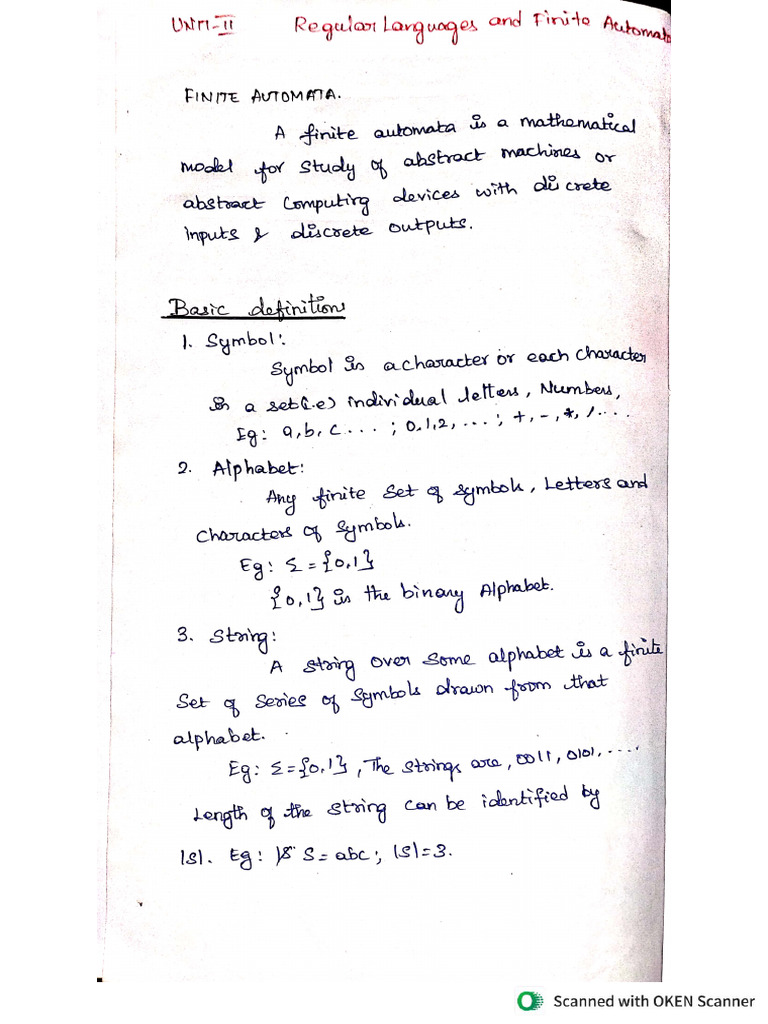 UNIT-II Regular Languages and Finite Automata
FINITE AUTOMATA.
A finite automata is a mathematical
model for study of abstract machines or
abstract computing devices with discrete
inputs & discrete outputs.
Basic definitions
1. Symbol:
Symbol is a character or each character
in a set (i.e) individual letters, Numbers,
Eg: a, b, c ... ; 0, 1, 2, ... ; +, -, *, / ....
2. Alphabet:
Any finite set of symbols, Letters and
characters of symbols.
Eg: Σ = {0,1}
{0,1} is the binary Alphabet.
3. String:
A string over some alphabet is a finite
set of series of symbols drawn from that
alphabet.
Eg: Σ={0,1}, The strings are, 0011, 0101, ....
Length of the string can be identified by
|S|. Eg: S = abc; |S|=3.
Scanned with OKEN Scanner